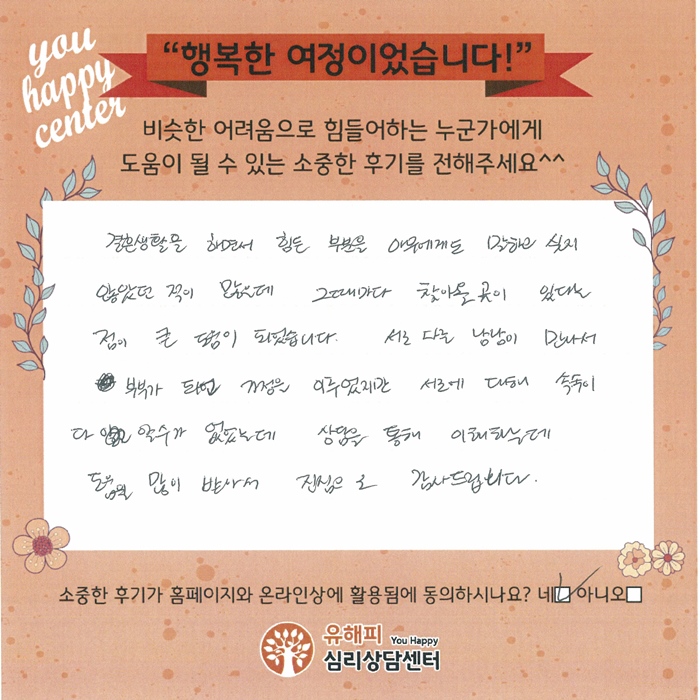 you
happy
center
“행복한 여정이었습니다!”
비슷한 어려움으로 힘들어하는 누군가에게
도움이 될 수 있는 소중한 후기를 전해주세요^^
결혼생활을 하면서 힘든 부분을 아무에게도 말하고 싶지
않았던 적이 많은데 그때마다 찾아올 곳이 있다는
점이 큰 도움이 되었습니다. 서로 다른 남남이 만나서
부부가 되어 가정을 이루었지만 서로에 대해 속속이
다 알수가 없었는데 상담을 통해 이해하는데
도움을 많이 받아서 진심으로 감사드립니다.
소중한 후기가 홈페이지와 온라인상에 활용됨에 동의하시나요? 네 아니오
유해피 You Happy
심리상담센터